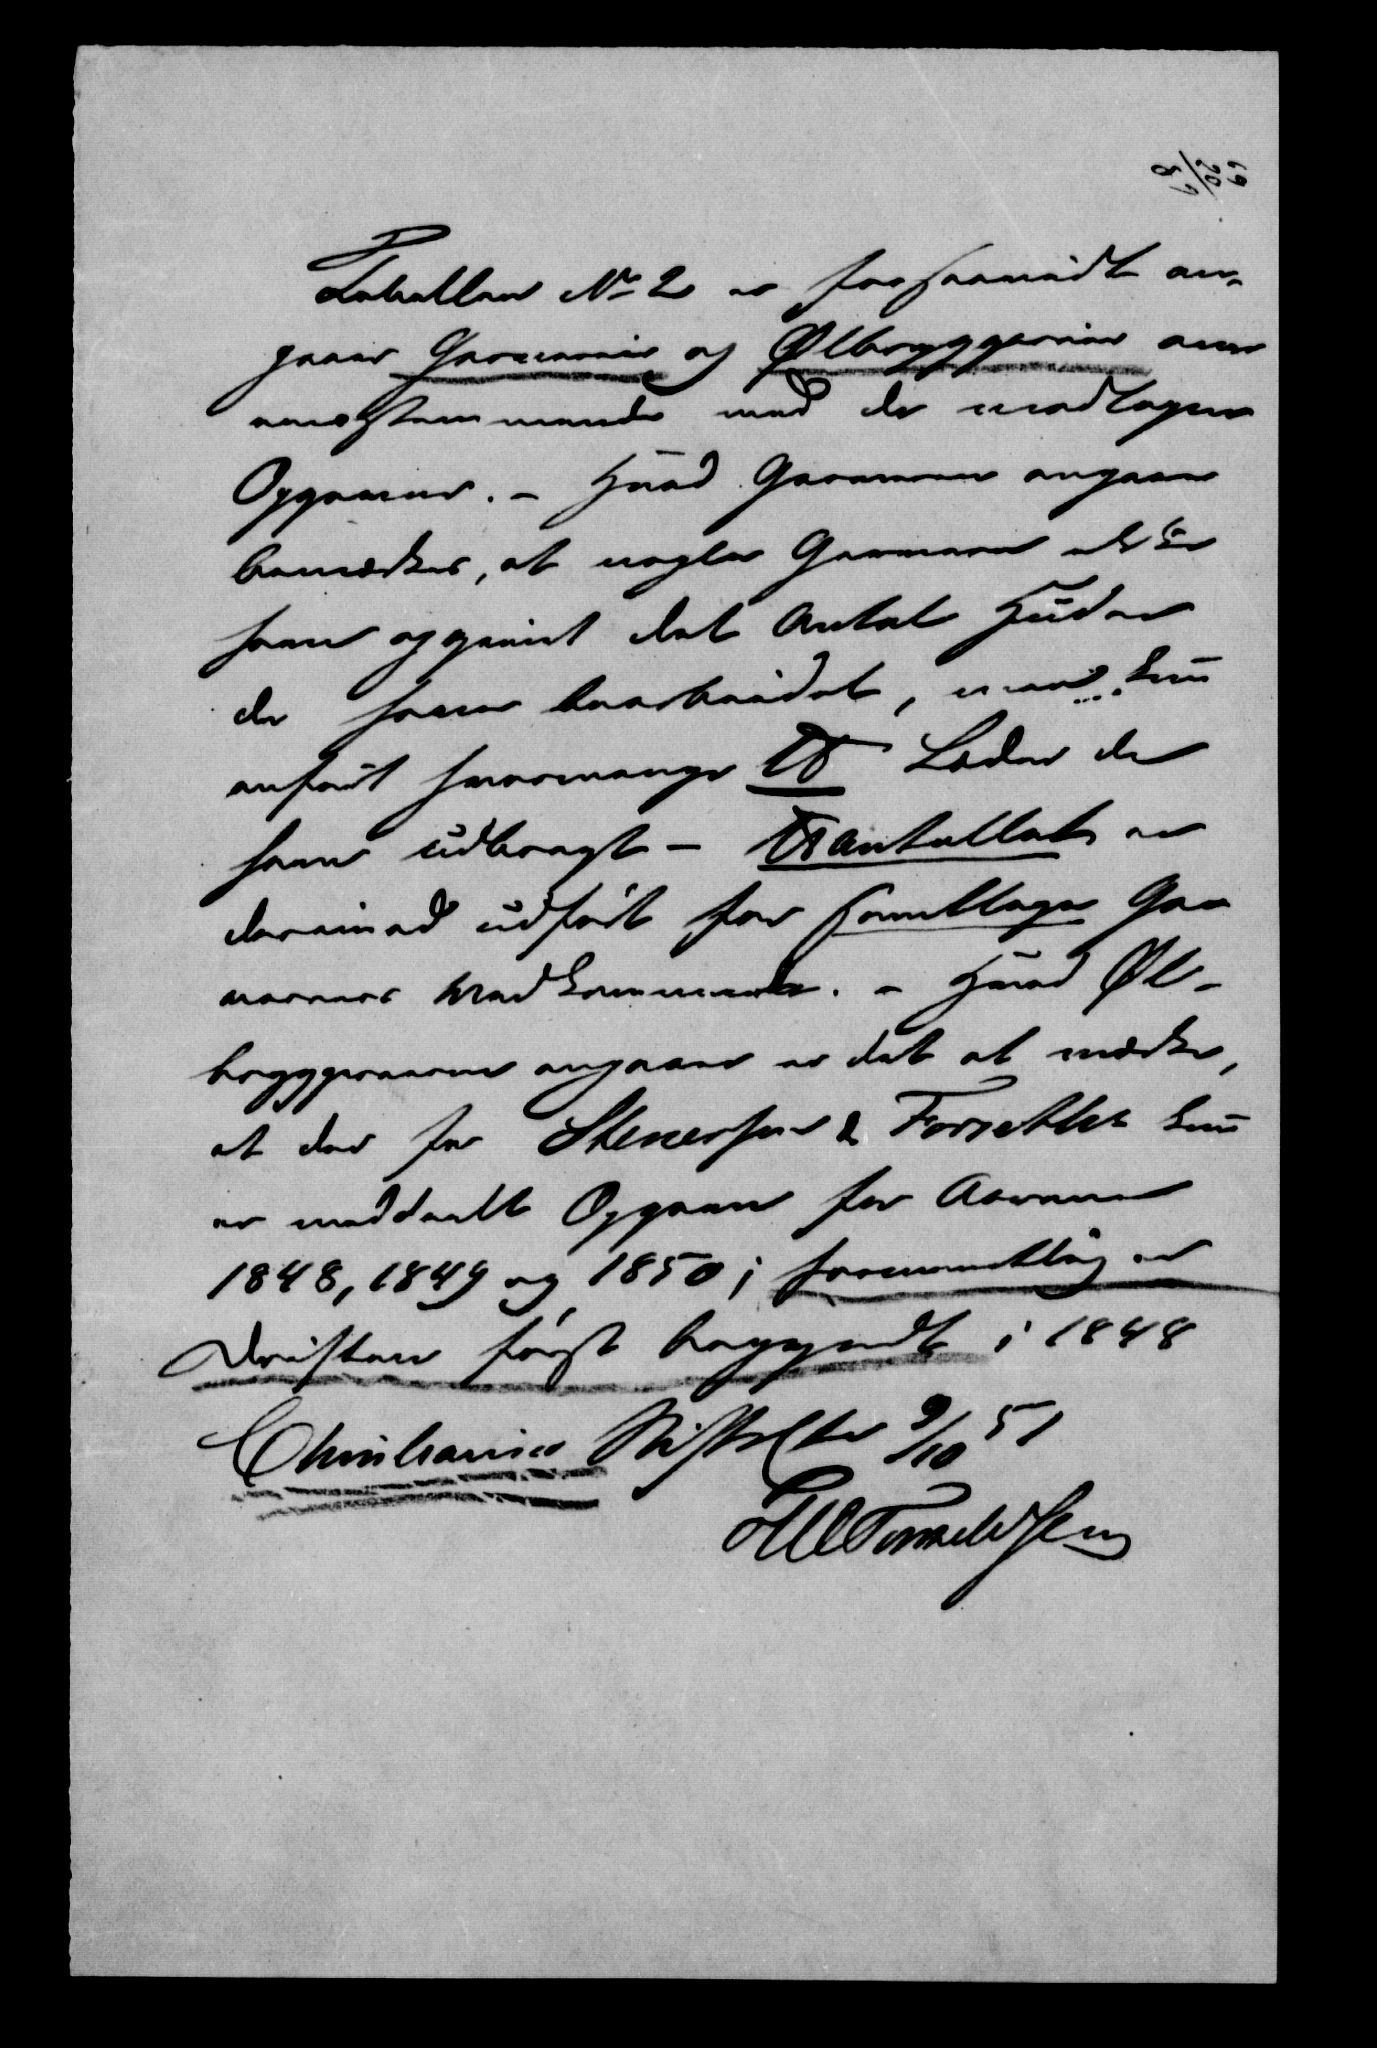 Tabellen No 2 er forsaavidt an-
gaar Garverier og Ølbryggerier over
eensstemmende med de modtagne
Opgaver. - Hvad Garverierne angaaer
bemærkes, at nogle Garvere ikke
have opgivet det Antal Huder
de have bearbeidet, men kun
anført hvormange ℔ Læder de
have udbragt - ℔antallet er
derimod udført for samtlige Gar
veriers Vedkommende. - Hvad Øl-
bryggerierne angaaer er det at mærke,
at der for Stenersen & Forseths kun
er meddeelt Opgave for Aarene
1848, 1849 og 1850; formentlig er
Driften først begyndt i 1848
Christiania Stiftsgtr 9/10 51